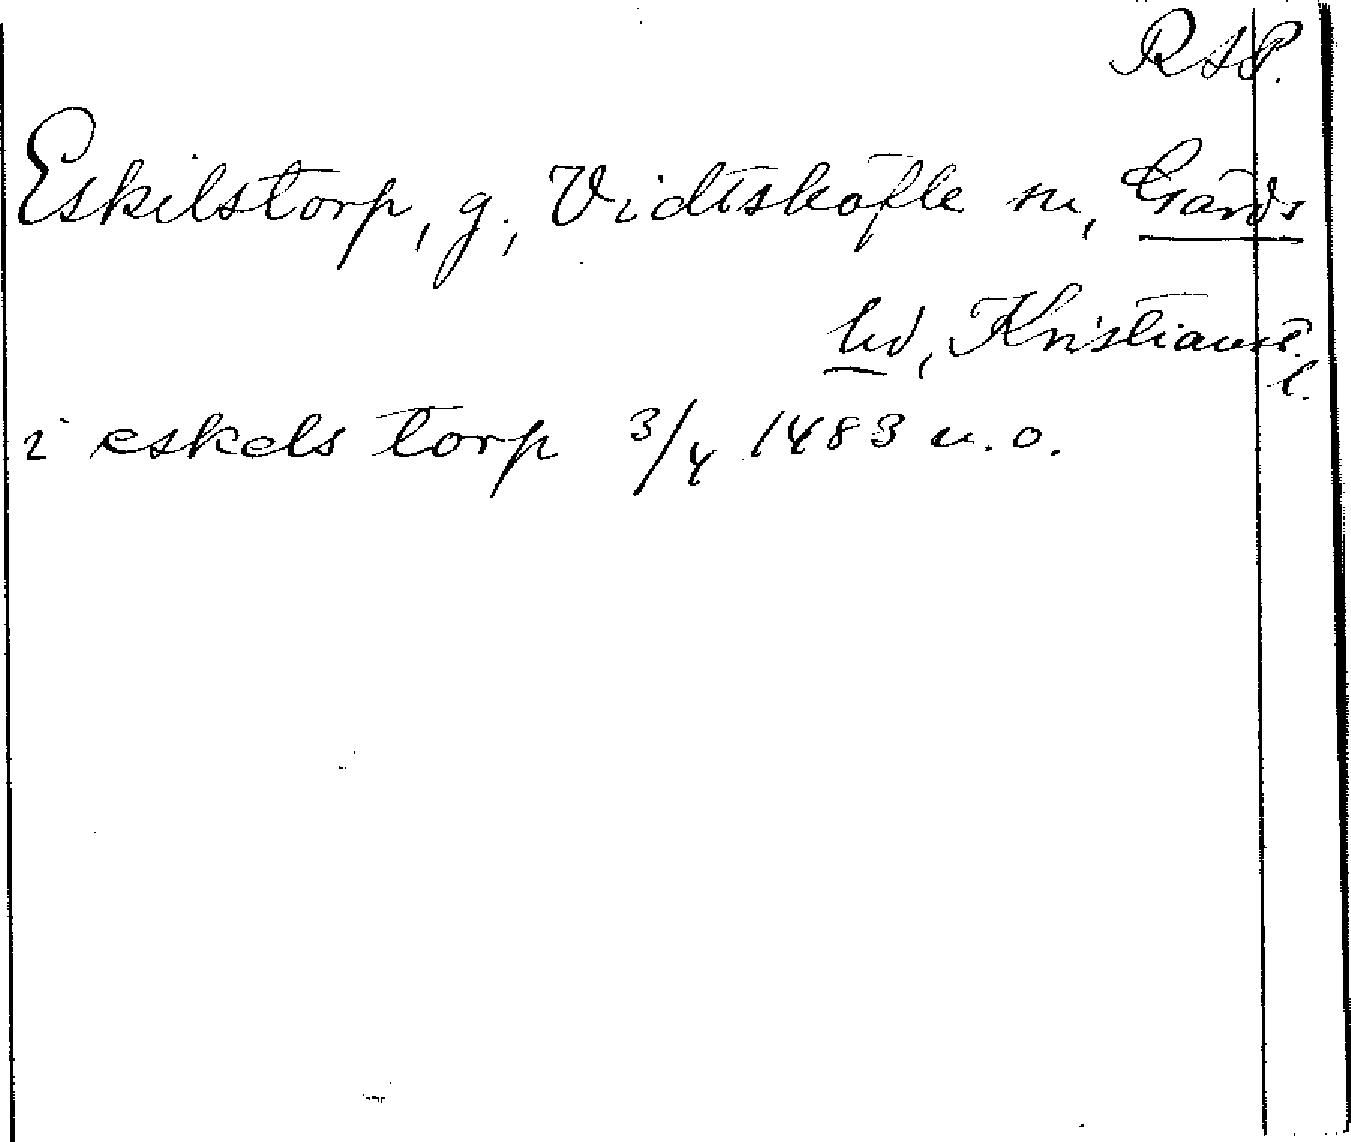 RAP.
Eskilstorp, g., Vidtsköfle sn, Gärds
hd, Kristianst.
l.
i eskels torp 3/4 1483 u. o.